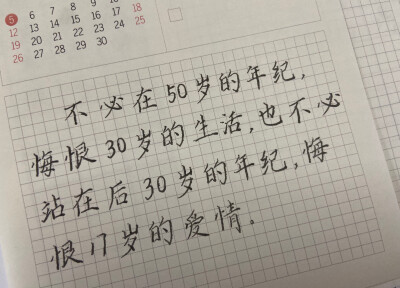 5 6 7 8 9 10
12 13 14 15 16 17 18
19 20 21 22 23 24 25
26 27 28 29 30
不必在50岁的年纪,
悔恨30岁的生活,也不必
站在后30岁的年纪,悔
恨17岁的爱情。